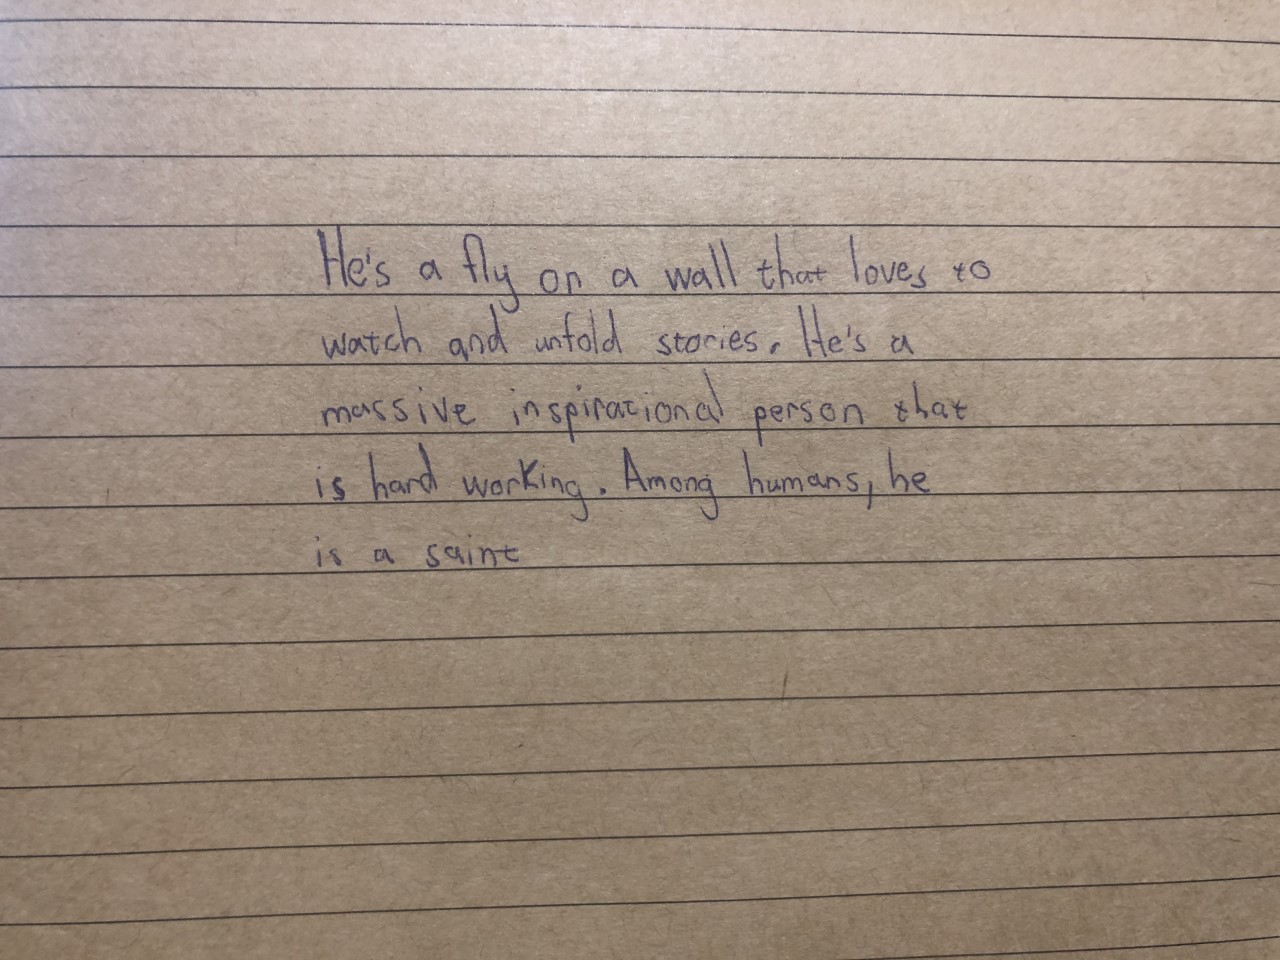 He's a fly on a wall that loves to
watch and unfold stories. He's a
massive inspirational person that
is hard working. Among humans, he
is a saint